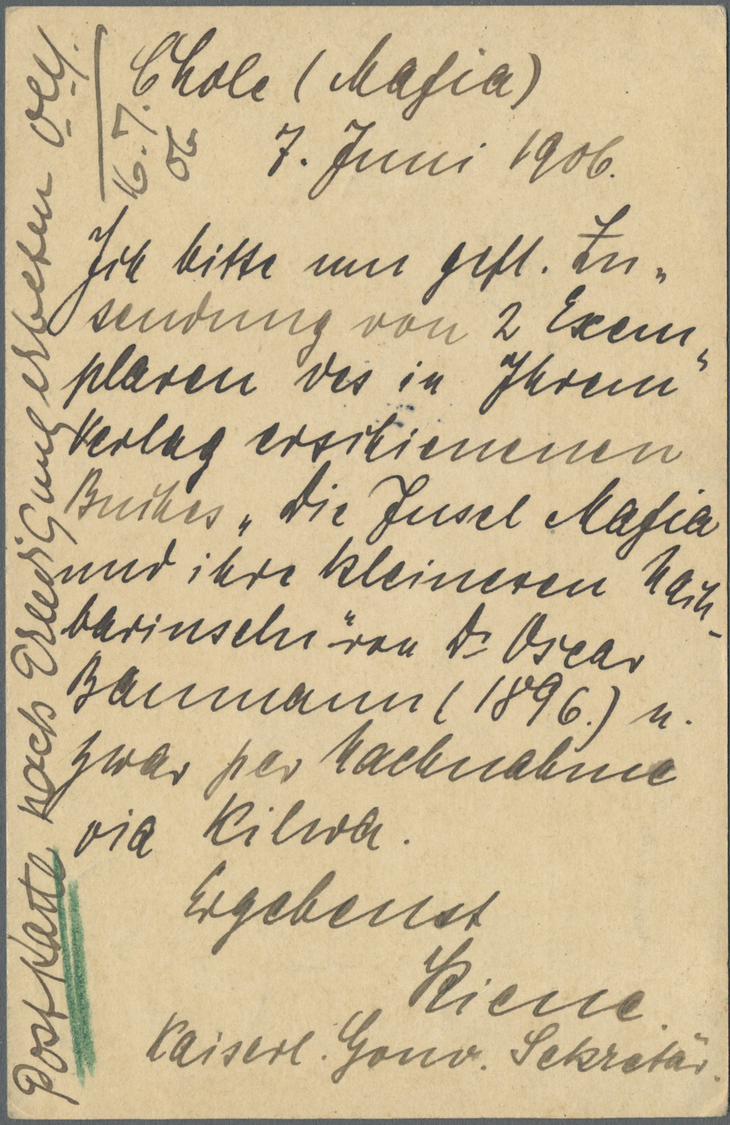 Chole (Mafia)
7. Juni 1906.
Ich bitte um gefl. Zu-
sendung von 2 Exem-
plaren des in Ihrem
Verlag erschienenen
Buches „Die Insel Mafia
und ihre kleineren Nach-
barinseln" von Dr Oscar
Baumann (1896.) u.
zwar per Nachnahme
via Kilwa.
Ergebenst
Kiene
Kaiserl. Gouv. Sekretär.
Postkarte nach Erledigung erbeten
16.7.
06